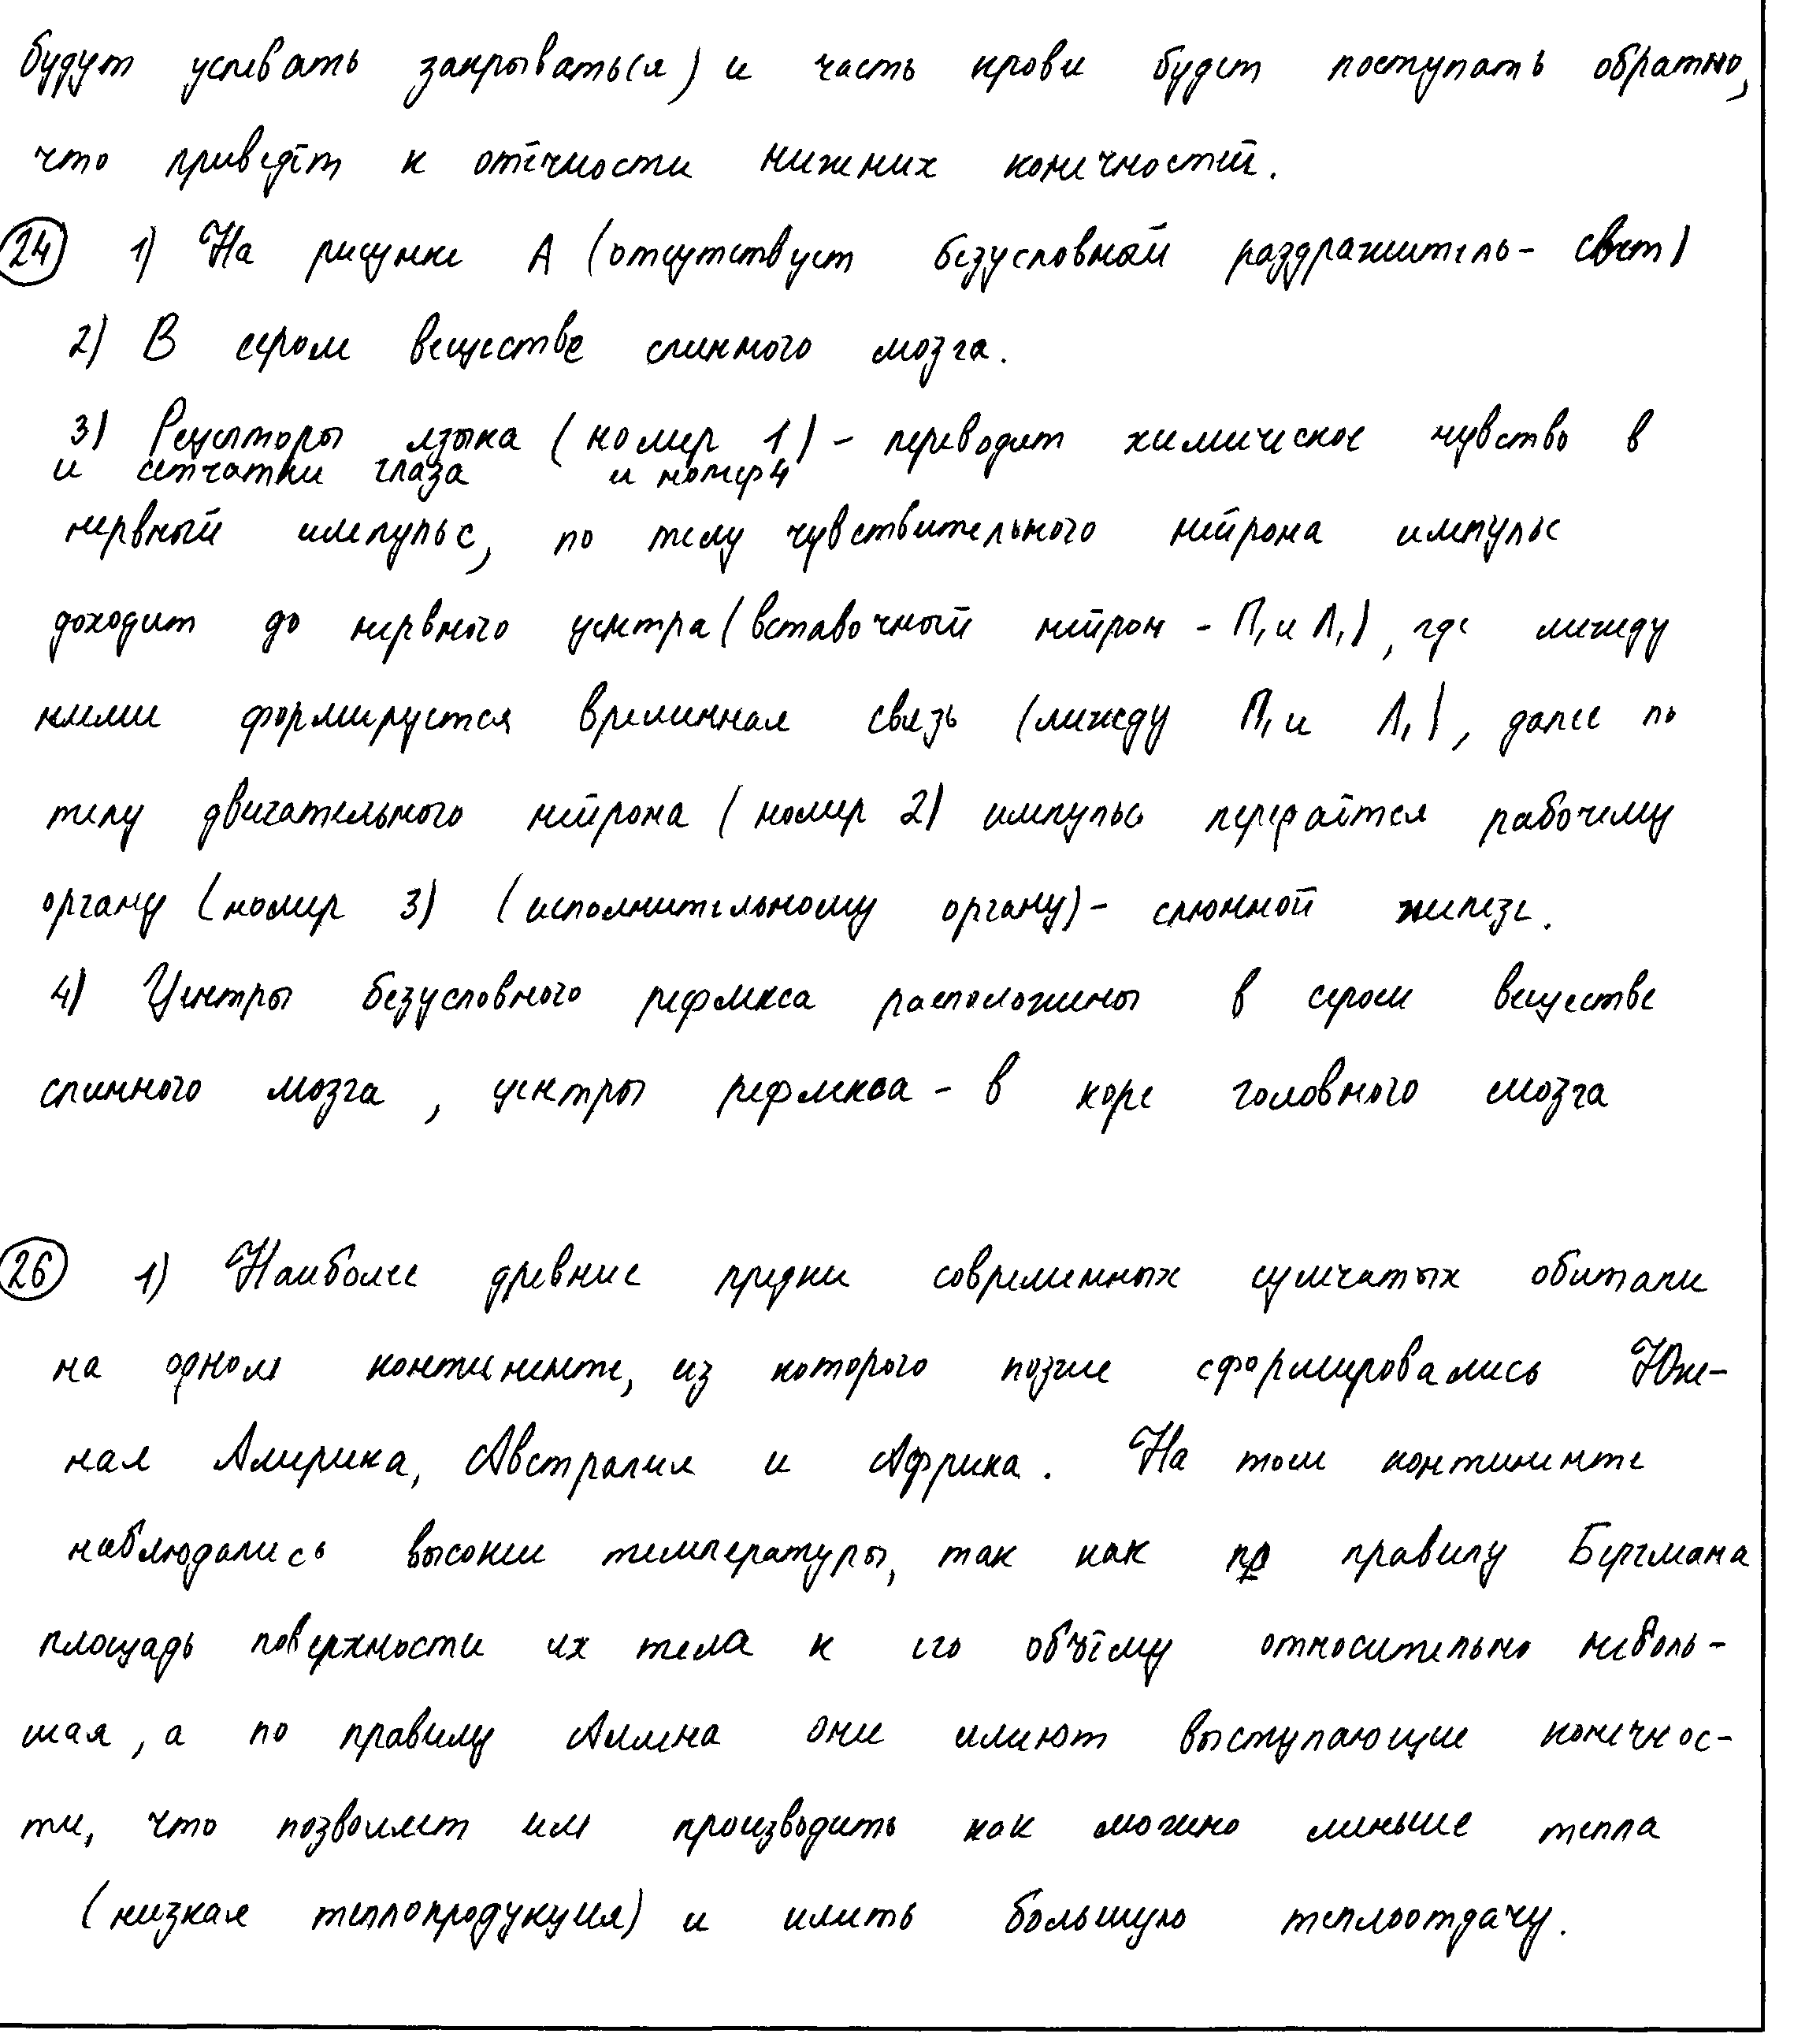 будут успевать закрываться) и часть крови будет поступать обратно,
что приведёт к отёчности нижних конечностей.
24 1) На рисунке А (отсутствует безусловный раздражитель - свет)
2) В сером веществе спинного мозга.
3) Рецепторы языка (номер 1) - переводит химическое чувство в
и сетчатки глаза и номер 4
нервный импульс, по телу чувствительного нейрона импульс
доходит до нервного центра (вставочный нейрон - П1 и Л1), где между
ними формируется временная связь (между П1 и Л1), далее по
телу двигательного нейрона (номер 2) импульс передаётся рабочему
органу (номер 3) (исполнительному органу) - слюнной железе.
4) Центры безусловного рефлекса расположены в сером веществе
спинного мозга, центры рефлекса - в коре головного мозга
26 1) Наиболее древние предки современных сумчатых обитали
на одном континенте, из которого позже сформировались Юж-
ная Америка, Австралия и Африка. На том континенте
наблюдались высокие температуры, так как по правилу Бергмана
площадь поверхности их тела к его объёму относительно неболь-
шая, а по правилу Аллена они имеют выступающие конечнос-
ти, что позволяет им производить как можно меньше тепла
(низкая теплопродукция) и иметь большую теплоотдачу.